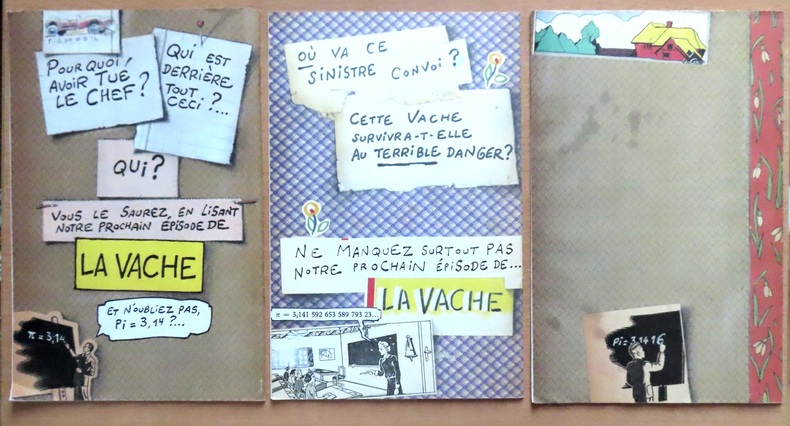 FIAMOBIL
POURQUOI
AVOIR TUÉ
LE CHEF?
QUI EST
DERRIÈRE
TOUT
CECI ?...
QUI?
VOUS LE SAUREZ, EN LISANT
NOTRE PROCHAIN ÉPISODE DE
LA VACHE
ET N'OUBLIEZ PAS,
Pi = 3,14 ?...
π = 3,14
OÙ VA CE
SINISTRE CONVOI ?
CETTE VACHE
SURVIVRA-T-ELLE
AU TERRIBLE DANGER?
NE MANQUEZ SURTOUT PAS
NOTRE PROCHAIN ÉPISODE DE...
LA VACHE
π = 3,141 592 653 589 793 23...
Pi = 3,1416